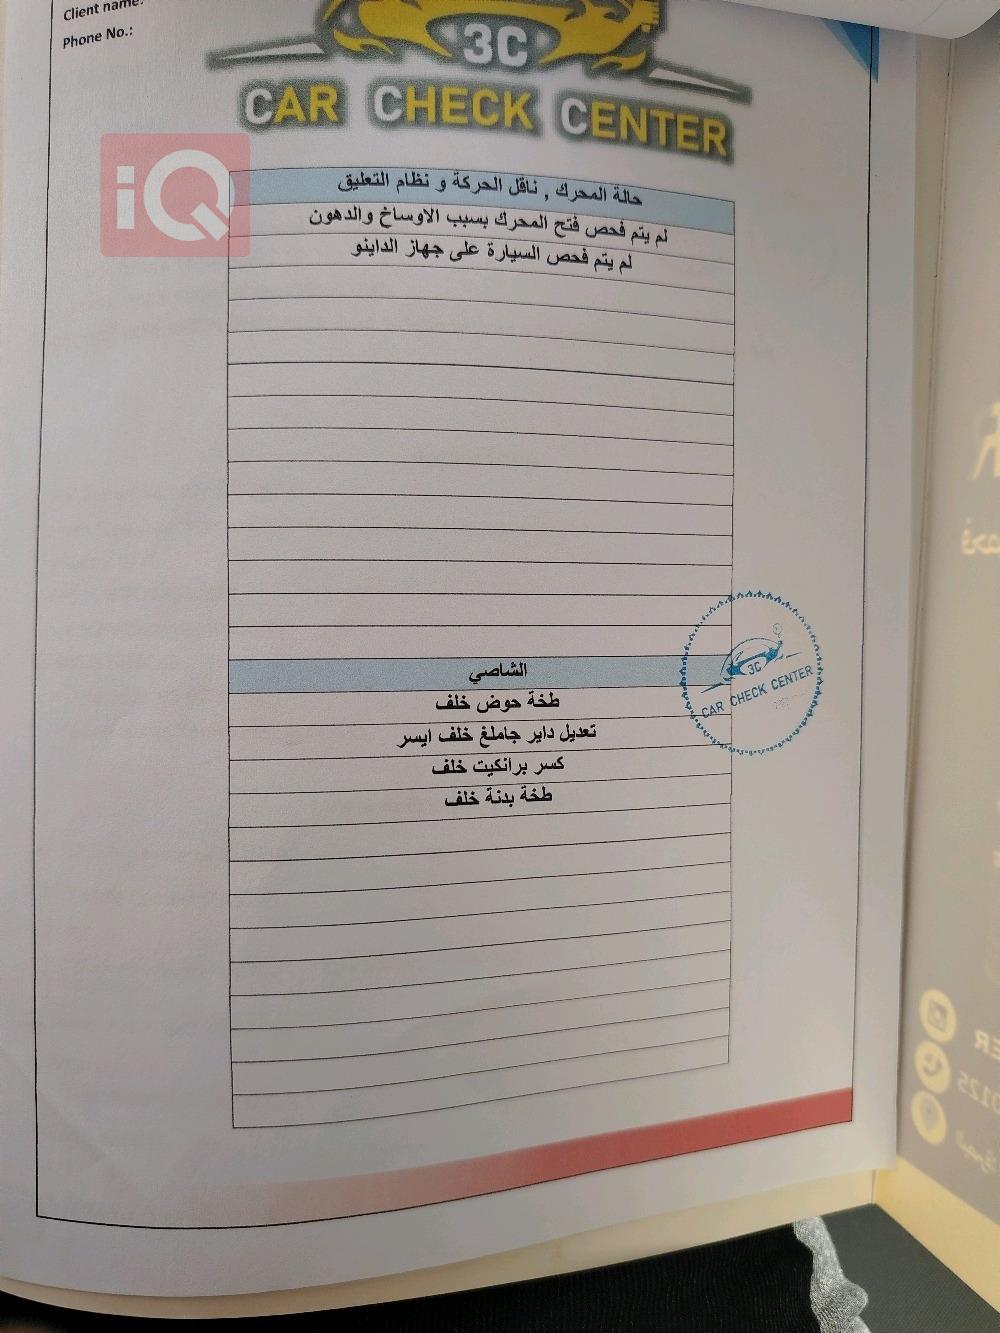 Client name:
Phone No.:
3C
CAR CHECK CENTER
iQ
حالة المحرك , ناقل الحركة و نظام التعليق
لم يتم فحص فتح المحرك بسبب الاوساخ والدهون
لم يتم فحص السيارة على جهاز الداينو
الشاصي
طخة حوض خلف
تعديل داير جاملغ خلف ايسر
كسر برانكيت خلف
طخة بدنة خلف
3C
CAR CHECK CENTER